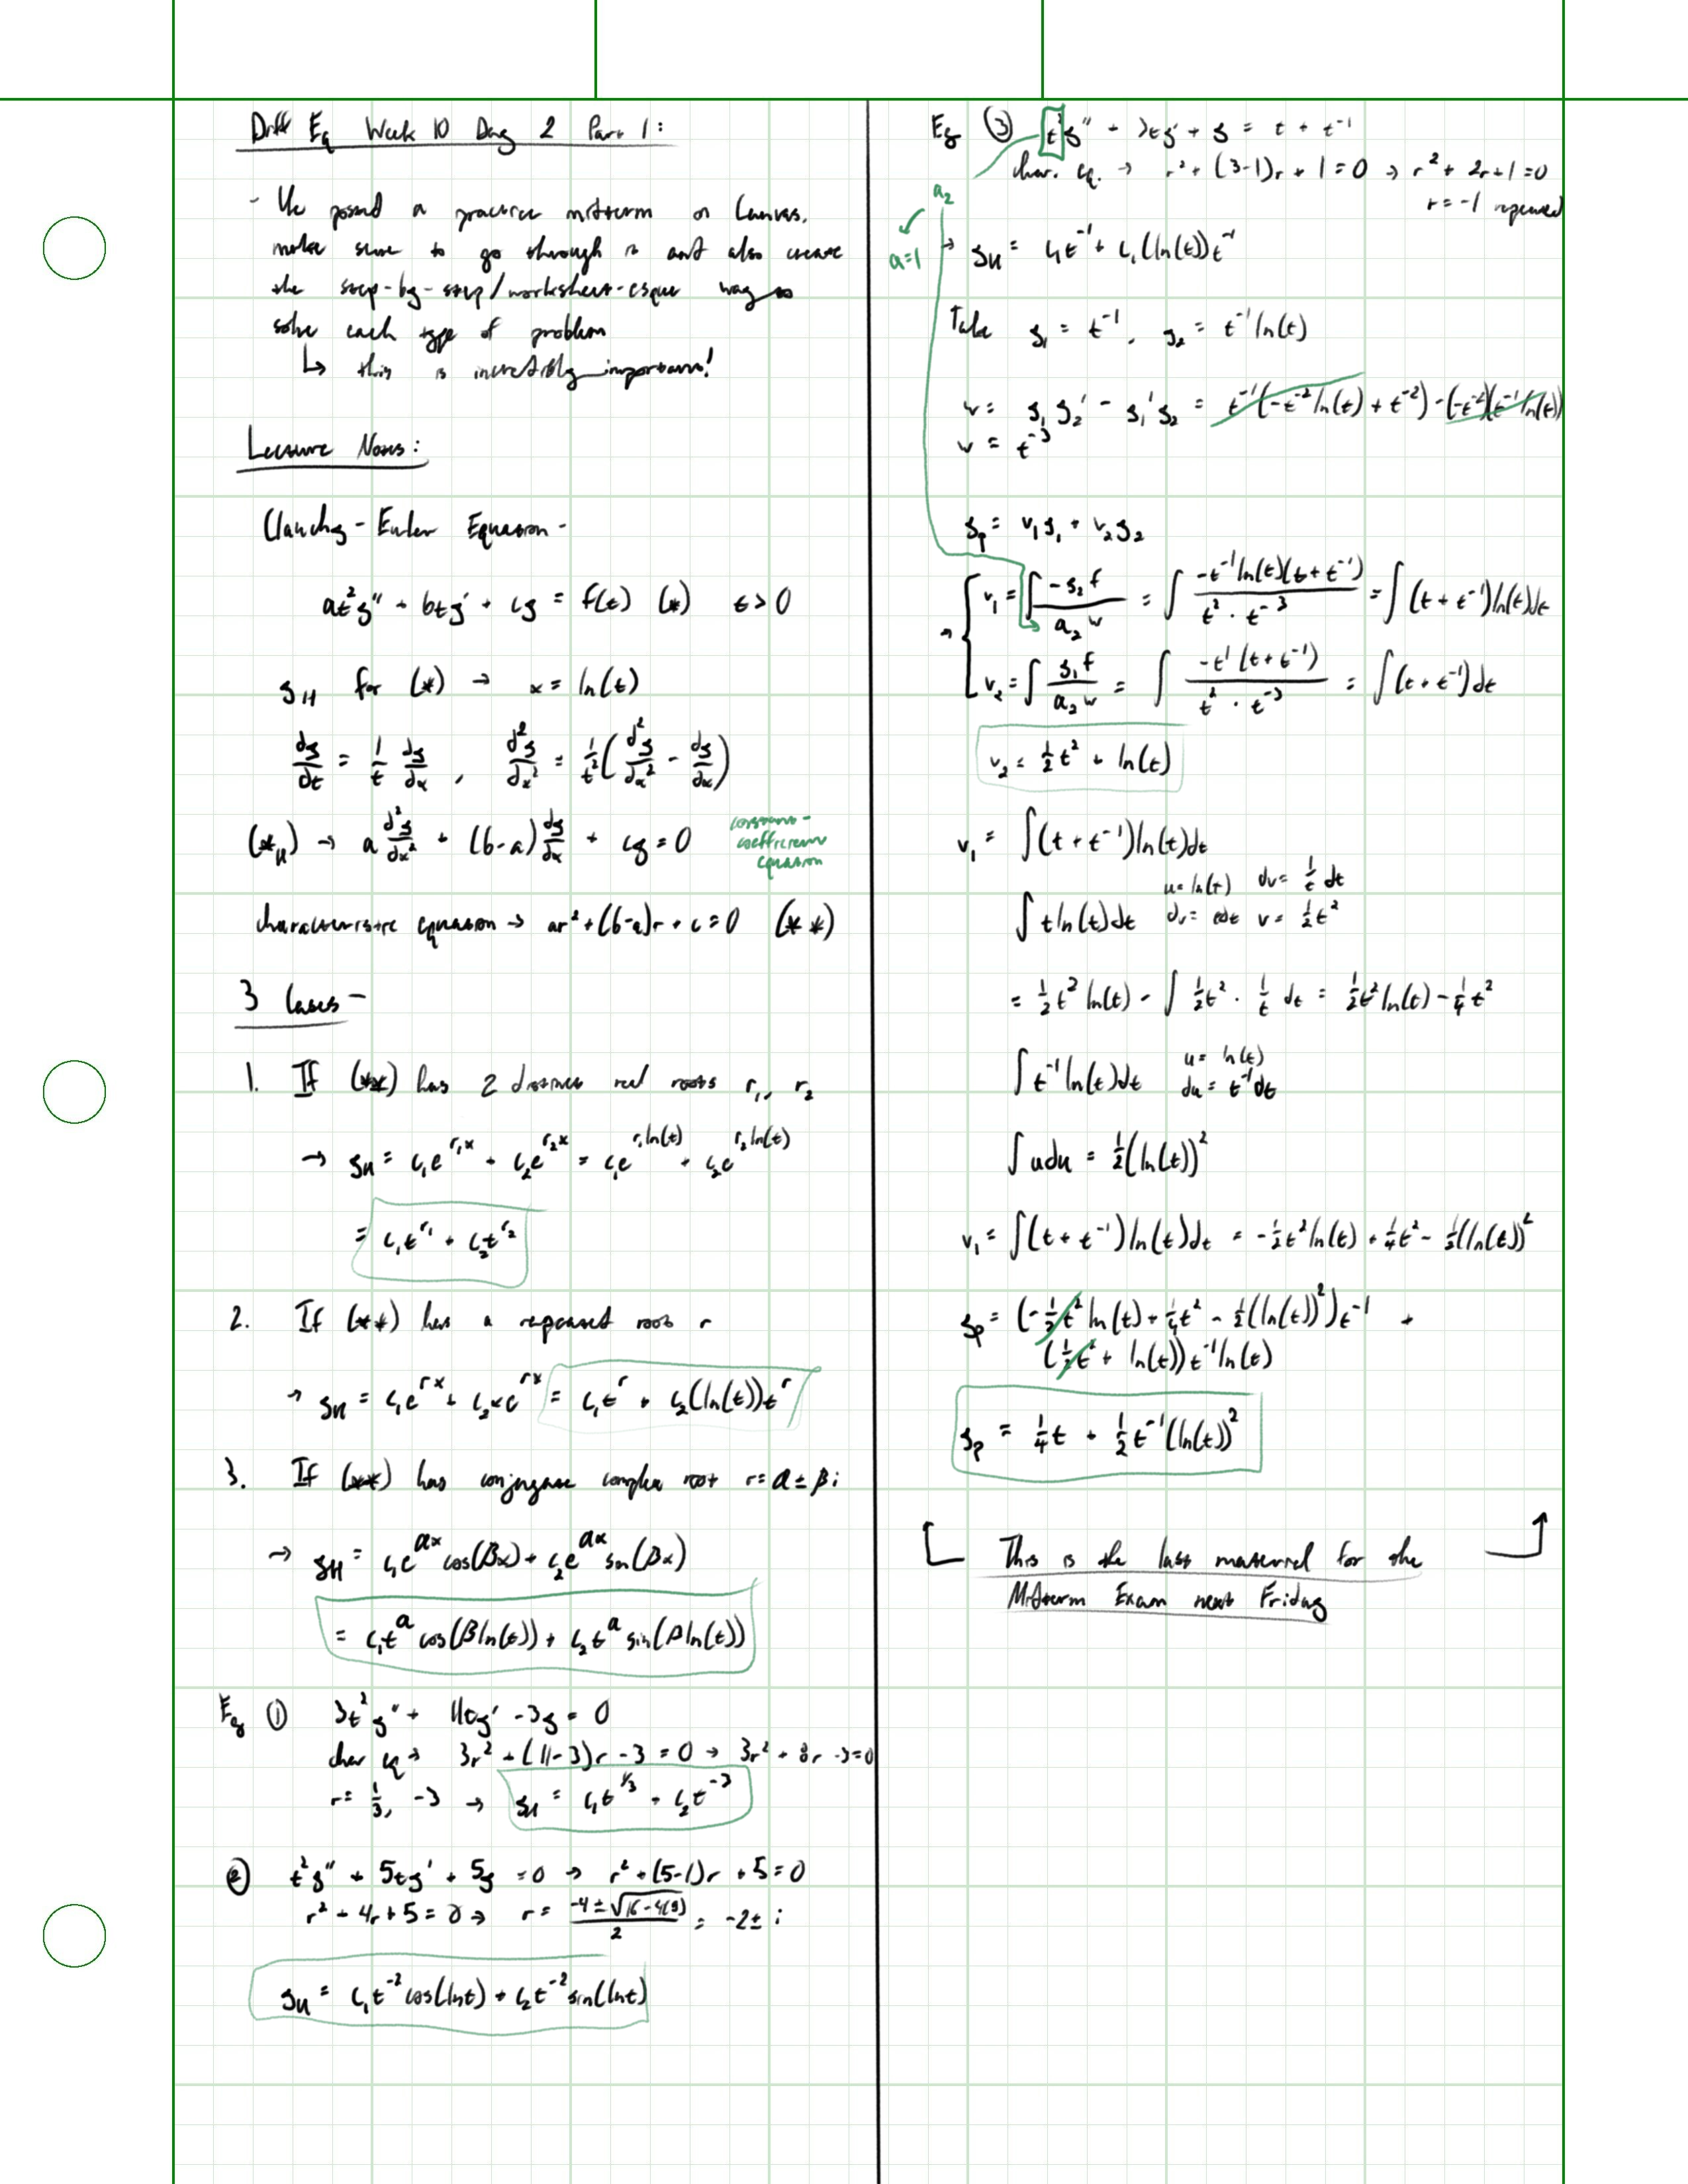 Diff Eq Week 10 Day 2 Part 1:
- He posted a practice midterm on Canvas.
make sure to go through it and also create
the step-by-step/worksheet-esque way to
solve each type of problem
↳ this is incredibly important!
Lecture Notes:
Clauchy-Euler Equation -
at²y'' + bty' + cy = f(t) (*) t>0
y_H for (*) → x = ln(t)
dy/dt = 1/t dy/dx , d²y/dx² = 1/t²(d²y/dx² - dy/dx)
(*_H) → a d²y/dx² + (b-a) dy/dx + cy = 0 constant-coefficient equation
characteristic equation → ar² + (b-a)r + c = 0 (**)
3 Cases -
1. If (**) has 2 distinct real roots r₁, r₂
→ y_H = c₁e^(r₁x) + c₂e^(r₂x) = c₁e^(r₁ln(t)) + c₂e^(r₂ln(t))
= c₁t^(r₁) + c₂t^(r₂)
2. If (**) has a repeated root r
→ y_H = c₁e^(rx) + c₂xe^(rx) = c₁t^r + c₂(ln(t))t^r
3. If (**) has conjugate complex root r = α ± βi
→ y_H = c₁e^(αx) cos(βx) + c₂e^(αx) sin(βx)
= c₁t^α cos(βln(t)) + c₂t^α sin(βln(t))
Eg ① 3t²y'' + 11ty' - 3y = 0
char eq → 3r² + (11-3)r - 3 = 0 → 3r² + 8r - 3 = 0
r = 1/3, -3 → y_H = c₁t^(1/3) + c₂t^(-3)
② t²y'' + 5ty' + 5y = 0 → r² + (5-1)r + 5 = 0
r² + 4r + 5 = 0 → r = (-4 ± √(16-4(5)))/2 = -2 ± i
y_H = c₁t^(-2) cos(lnt) + c₂t^(-2) sin(lnt)
Eg ③ t²y'' + 3ty' + y = t + t^(-1)
char. eq. → r² + (3-1)r + 1 = 0 → r² + 2r + 1 = 0
r = -1 repeated
a₂
a=1
→ y_H = c₁t^(-1) + c₁(ln(t))t^(-1)
Take y₁ = t^(-1), y₂ = t^(-1)ln(t)
w = y₁y₂' - y₁'y₂ = t^(-1)(-t^(-2)ln(t) + t^(-2)) - (-t^(-2))(t^(-1)ln(t))
w = t^(-3)
y_p = v₁y₁ + v₂y₂
→ { v₁ = ∫ -y₂f/(a₂w) = ∫ -t^(-1)ln(t)(t + t^(-1))/(t² · t^(-3)) = ∫(t + t^(-1))ln(t)dt
v₂ = ∫ y₁f/(a₂w) = ∫ -t^1(t + t^(-1))/(t² · t^(-3)) = ∫(t + t^(-1))dt
v₂ = ½t² + ln(t)
v₁ = ∫(t + t^(-1))ln(t)dt
∫tln(t)dt u = ln(t) dv = 1/t dt
dv = tdt v = ½t²
= ½t² ln(t) - ∫½t² · 1/t dt = ½t² ln(t) - ¼t²
∫t^(-1)ln(t)dt u = ln(t)
du = t^(-1)dt
∫udu = ½(ln(t))²
v₁ = ∫(t + t^(-1))ln(t)dt = -½t²ln(t) + ¼t² - ½(ln(t))²
y_p = (-½t² ln(t) + ¼t² - ½(ln(t))²)t^(-1) +
(½t² + ln(t))t^(-1)ln(t)
y_p = ¼t + ½t^(-1)(ln(t))²
This is the last material for the
Midterm Exam next Friday